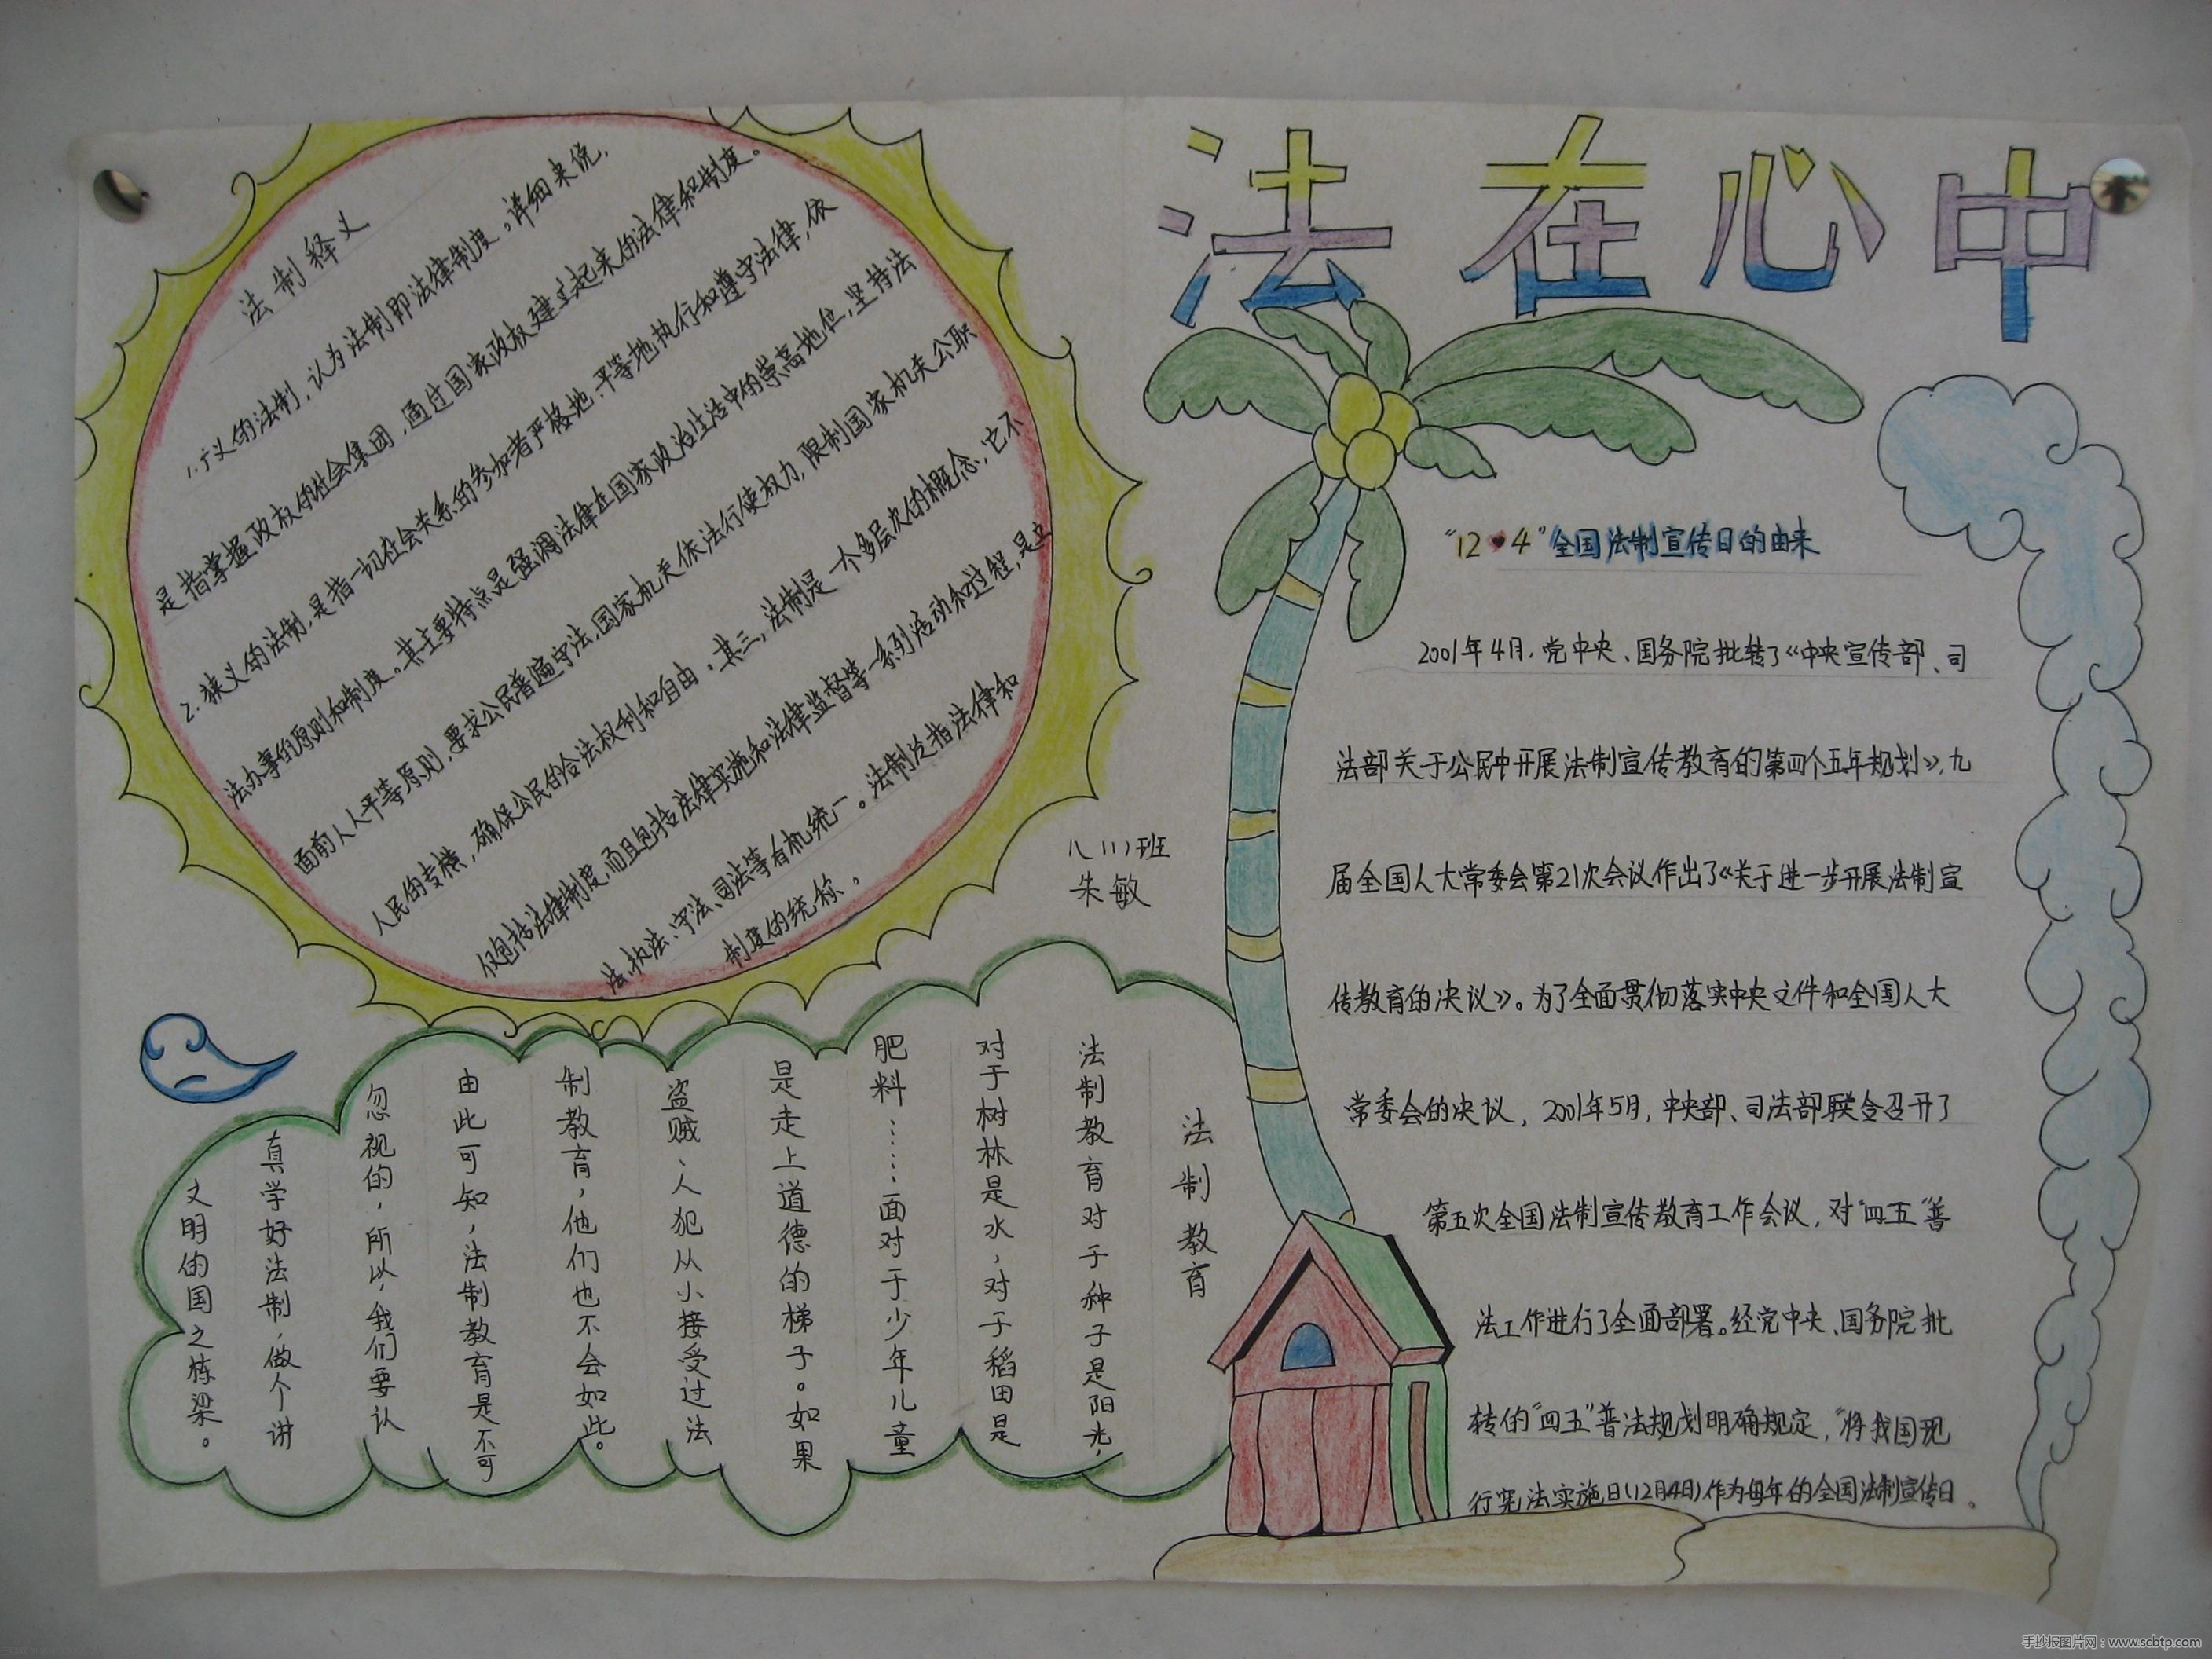 法在心中
法制释义
1.广义的法制,认为法制即法律制度。详细来说,
是指掌握政权的社会集团,通过国家政权建立起来的法律和制度。
2.狭义的法制,是指一切社会关系的参加者严格地、平等地执行和遵守法律,依
法办事的原则和制度。其主要特点是强调法律在国家政治生活中的崇高地位,坚持法
面前人人平等原则,要求公民普遍守法,国家机关依法行使权力,限制国家机关公职
人民的专横,确保公民的合法权利和自由。其三,法制是一个多层次的概念,它不
仅包括法律制度,而且包括法律实施和法律监督等一系列活动和过程,是立
法、执法、守法、司法等有机统一。法制总指法律和
制度的统称。
八(1)班
朱敏
“12·4”全国法制宣传日的由来
2001年4月,党中央、国务院批转了《中央宣传部、司
法部关于公民中开展法制宣传教育的第四个五年规划》,九
届全国人大常委会第21次会议作出了《关于进一步开展法制宣
传教育的决议》。为了全面贯彻落实中央文件和全国人大
常委会的决议,2001年5月,中央部、司法部联合召开了
第五次全国法制宣传教育工作会议,对“四五”普
法工作进行了全面部署。经党中央、国务院批
转的“四五”普法规划明确规定,“将我国现
行宪法实施日(12月4日)作为每年的全国法制宣传日。
法制教育
法制教育对于种子是阳光,
对于树林是水,对于稻田是
肥料……面对于少年儿童
是走上道德的梯子。如果
盗贼、人犯从小接受过法
制教育,他们也不会如此。
由此可知,法制教育是不可
忽视的,所以,我们要认
真学好法制,做个讲
文明的国之栋梁。
手抄报图片网:www.scbtp.com